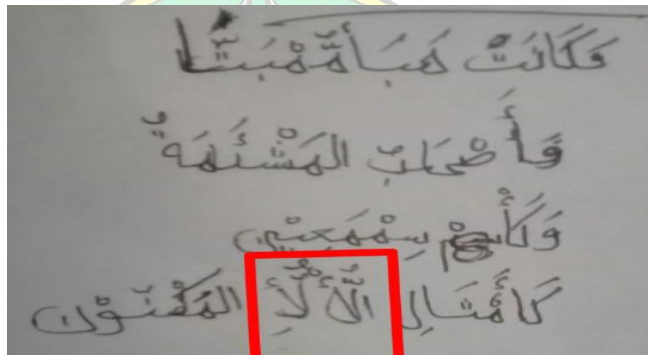 وَكَانَتْ هَبَأَمُّمْبَتًّا
وَأَصْحَابُ الْمَشْئَمَةِ
وَكَأْسٍ سِمْمَعِيْنٍ
كَأَمْثَالِ الُّأْلُأِ المَكْنُوْنِ